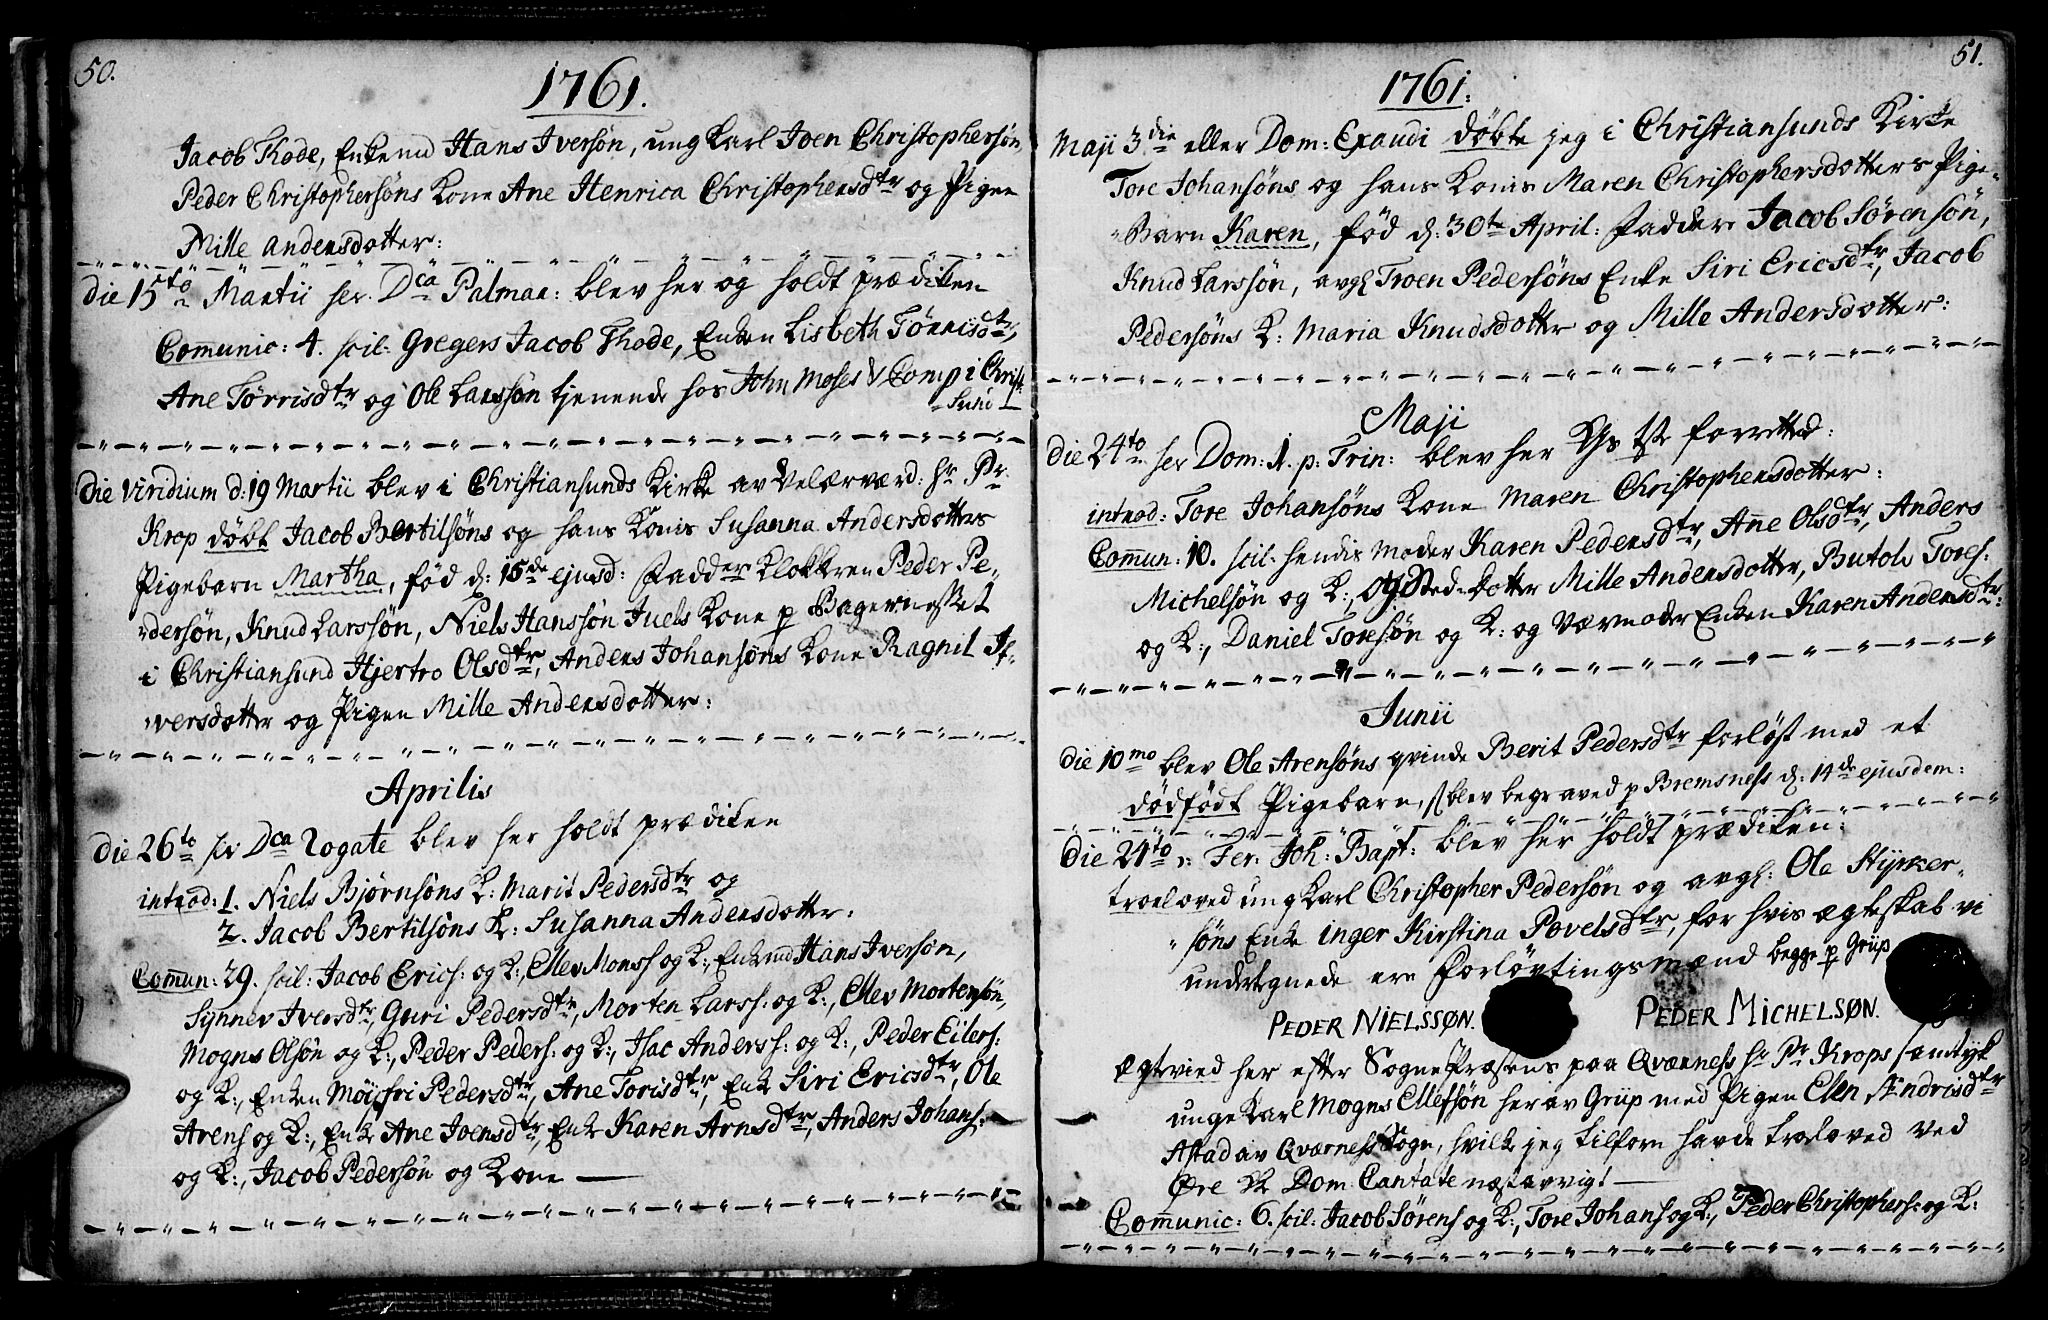 50.
1761.
Jacob Thode, Enkemd Hans Iversøn, ung Karl Joen Christophersøn,
Peder Christophersøns Kone Ane Henrica Christophersdtr og Pigen
Mille andersdotter:
die 15to Martii ser. Dca Palmar: blev her og holdt prædiken
Comunic: 4. scil: Gregers Jacob Thode, Enken Lisbeth Tørrisdtr,
Ane Tørrisdtr og Ole Larssøn tjenende hos John Moses & Comp i Christ-
-sund
die viridium d: 19 Martii blev i Christiansunds Kirke av Velærværd: Hr Pr
Krop døbt Jacob Bertilsøns og hans Konis Susanna Andersdotters
Pigebarn Martha, fød d: 15de ejusd: Fadder Klokkeren Peder Pe-
-dersøn, Knud Larssøn, Niels Hanssøn Juels Kone p Bagernesset
i Christiansund Hjertro Olsdtr, Anders Johansøns Kone Ragnil I-
versdotter og Pigen Mille Andersdotter:
Aprilis
die 26to ser Dca Rogate blev her holdt prædiken
introd: 1. Niels Bjørnsøns K: Marit Pedersdtr og
2. Jacob Bertilsøns K: Susanna Andersdotter:
Comun: 29. scil: Jacob Erics: og K:, Ellev Monss og K:, Enkemd Hans Iversøn,
Syhnev Iversdtr, Guri Pedersdtr, Morten Larss: og K:, Ellev Mortensøn,
Mogns Olsøn og K:, Peder Peders: og K:, Isac Anderss: og K:, Peder Eilers:
og K:, Enken Möifri Pedersdtr, Ane Torisdtr, Enk Siri Ericsdtr, Ole
Arens og K:, Enk Ane Joensdtr, Enk Karen Arnsdtr, Anders Johans:
og K:, Jacob Pedersøn og Kone
51.
1761:
Maji 3die eller Dom: Exaudi døbte jeg i Christiansunds Kirke
Tore Johansøns og hans Konis Maren Christophersdotters Pige-
-Barn Karen, fød d: 30te April: Fadder Jacob Sørensøn,
Knud Larssøn, avgl Troen Pedersøns Enke Siri Ericsdtr, Jacob
Pedersøns K: Maria Knudsdotter og Mille Andersdotter:
Maji
die 24to ser Dom: 1. p: Trin: blev her forretted:
introd: Tore Johansøns Kone Maren Christophersdotter:
Comun: 10. scil: hendis Moder Karen Pedersdtr, Ane Olsdtr, Anders
Michelsøn og K:, og Sted-dotter Mille Andersdotter, Butolv Tores:
og K:, Daniel Toresøn og K: og Værmoder Enken Karen Andersdtr:
Junii
die 10mo blev Ole Arensøns qvinde Berit Pedersdtr forløst med et
dødfødt Pigebarn, blev begraved p Bremsness d: 14de ejusdem:
die 24to Fer: Joh: Bapt: blev her holdt prædiken:
troeloved ung Karl Christopher Pedersøn og avgl: Ole Styrker-
-søns Enke inger Kirstina Povelsdtr, for hvis ægteskab vi
undertegnede ere Forlovtingsmænd begge p Grüp
PEDER NIELSSØN.
PEDER MICHELSØN.
Ægtvied her efter SognePræstens paa Qværness Hr Pr Krops samtyk
unge Karl Mogns Ellefsøn her av Grüp med Pigen Elen Ændrisdtr
Astad av Qværness Sogn, hvilk jeg tilforn havde troeloved ved
Øre Dom Cantate næstavvigt
Comunic: 6. scil: Jacob Sørens og K:, Tore Johans og K:, Peder Christophers: og K: